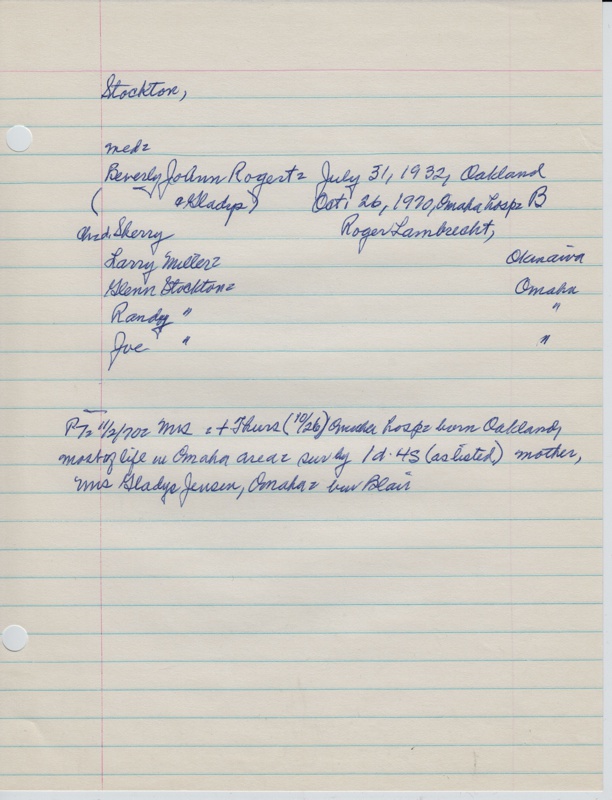 Stockton,
md=
Beverly JoAnn Rogert= July 31, 1932, Oakland
( &Gladys) Oct 26, 1970, Omaha hosp= B
chrd. Sherry Roger Lambrecht,
Larry Miller= Okinaiva
Glenn Stockton= Omaha
Randy " "
Joe " "
PT= 11/2/70= Mrs = + Thurs (10/26) Omaha hosp= born Oakland,
most of life in Omaha area= sur by 1d. 4S (as listed) mother,
Mrs Gladys Jensen, Omaha= bur Blair